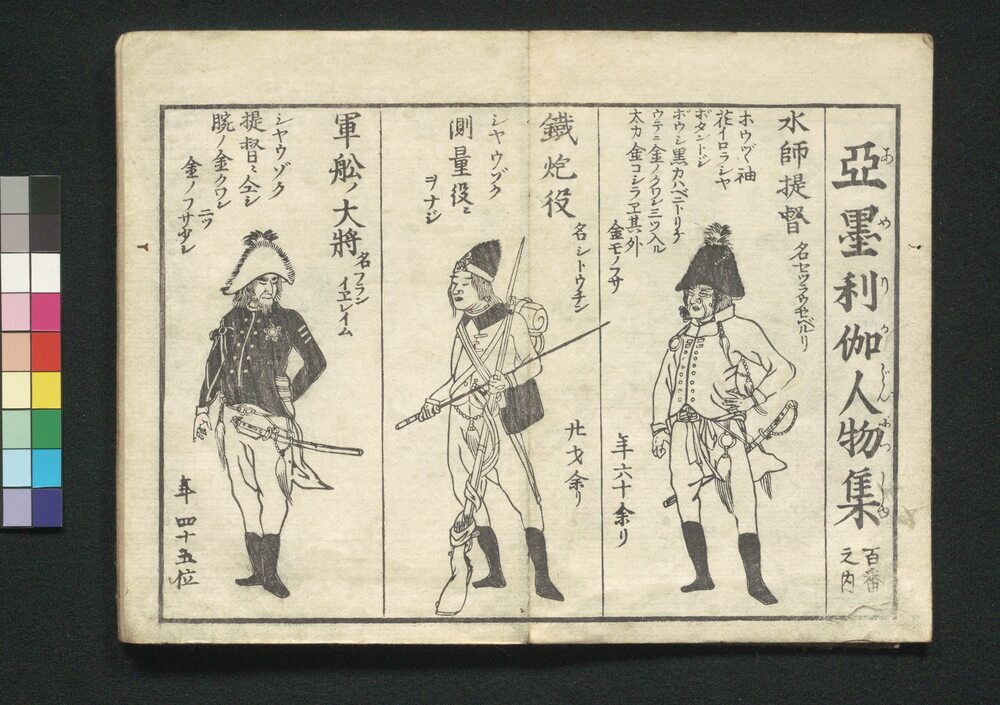 亞墨利伽人物集
あめりかじんぶつしう
百番
之内
水師提督
名セツテウセベルリ
ホウヅヽ袖
花イロラシヤ
ボタントジ
ボウシ黒カハベニトリチ
ウテニ金ノクワン三ツ入ル
太刀金コシラヱ其外
金モノフサ
年六十余り
鐵炮役
名シトウチン
シヤウゾク
測量役ニ
ヲナジ
廿才余り
軍舩ノ大將
名フラン
イヱレイム
シヤウゾク
提督ニ仝シ
腕ノ金クワン
二ツ
金ノフサ少シ
年四十五位